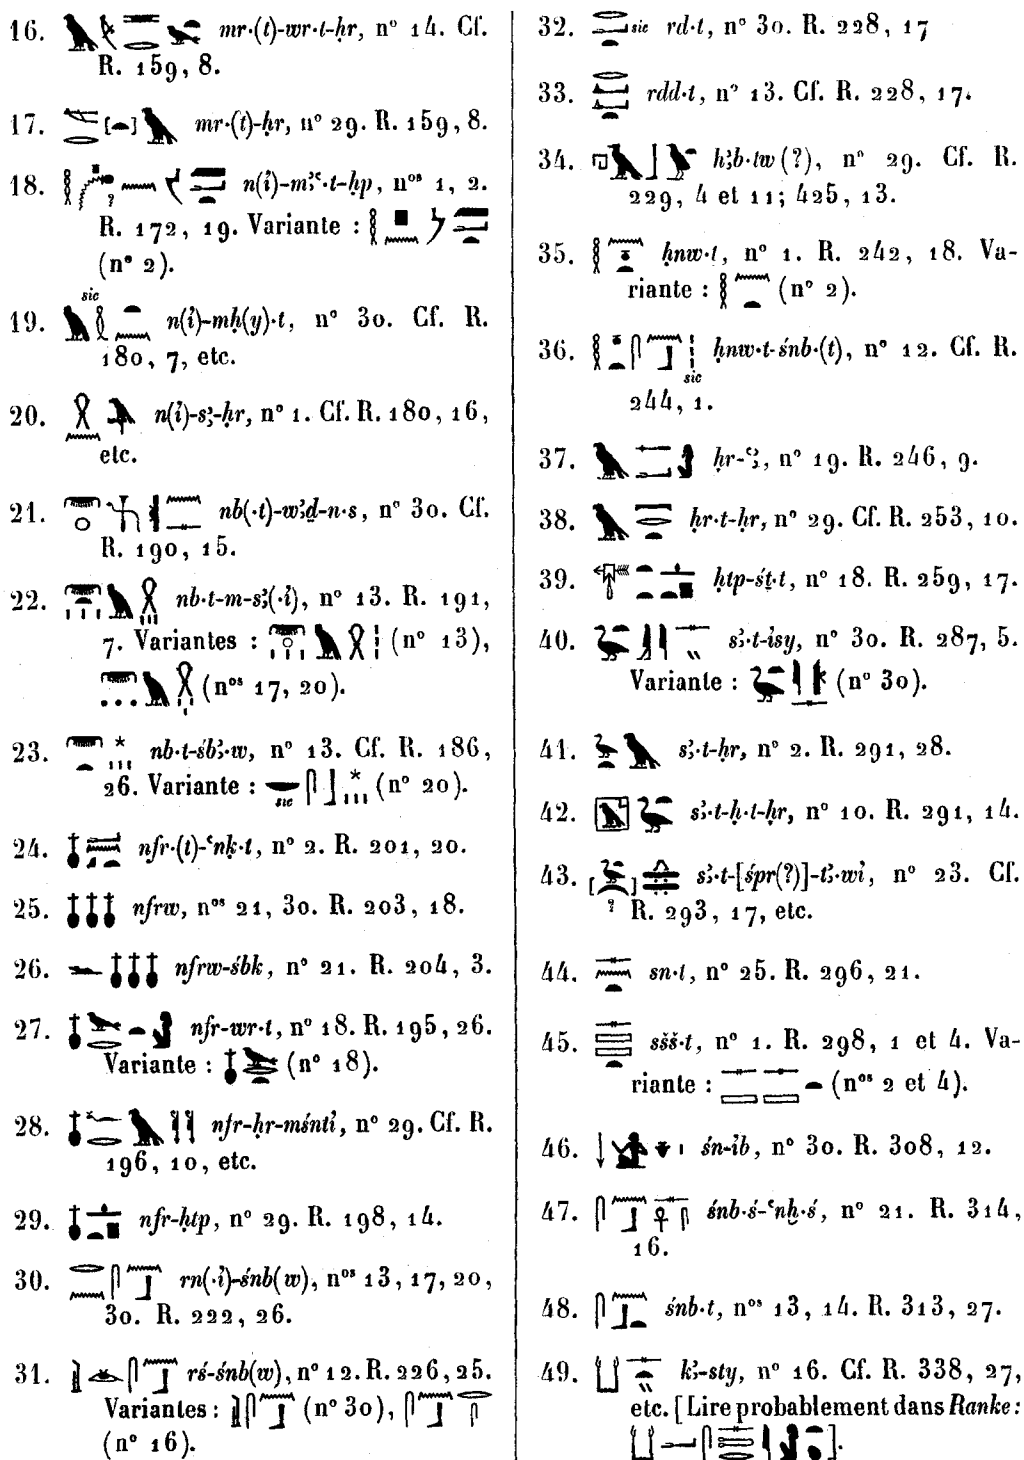 16. mr·(t)-wr·t-ḥr, n° 14. Cf.
R. 159, 8.
17. mr·(t)-ḥr, n° 29. R. 159, 8.
18. n(ỉ)-mꜣꜥ·t-ḥp, nos 1, 2.
R. 172, 19. Variante :
(n° 2).
sic
19. n(ỉ)-mḥ(y)·t, n° 30. Cf. R.
180, 7, etc.
20. n(ỉ)-sꜣ-ḥr, n° 1. Cf. R. 180, 16,
etc.
21. nb(·t)-wꜣḏ-n·s, n° 30. Cf.
R. 190, 15.
22. nb·t-m-sꜣ(·ỉ), n° 13. R. 191,
7. Variantes : (n° 13),
(nos 17, 20).
23. nb·t-śbꜣ·w, n° 13. Cf. R. 186,
26. Variante : sic (n° 20).
24. nfr·(t)-ꜥnḳ·t, n° 2. R. 201, 20.
25. nfrw, nos 21, 30. R. 203, 18.
26. nfrw-śbk, n° 21. R. 204, 3.
27. nfr-wr·t, n° 18. R. 195, 26.
Variante : (n° 18).
28. nfr-ḥr-mśntỉ, n° 29. Cf. R.
196, 10, etc.
29. nfr-ḥtp, n° 29. R. 198, 14.
30. rn(·ỉ)-śnb(w), nos 13, 17, 20,
30. R. 222, 26.
31. rś-śnb(w), n° 12. R. 226, 25.
Variantes : (n° 30),
(n° 16).
32. sic rd·t, n° 30. R. 228, 17
33. rdd·t, n° 13. Cf. R. 228, 17.
34. hꜣb·tw (?), n° 29. Cf. R.
229, 4 et 11; 425, 13.
35. ḥnw·t, n° 1. R. 242, 18. Va-
riante : (n° 2).
36. ḥnw·t-śnb·(t), n° 12. Cf. R.
sic
244, 1.
37. ḥr-ꜥꜣ, n° 19. R. 246, 9.
38. ḥr·t-ḥr, n° 29. Cf. R. 253, 10.
39. ḥtp-śṯ·t, n° 18. R. 259, 17.
40. sꜣ·t-ỉsy, n° 30. R. 287, 5.
Variante : (n° 30).
41. sꜣ·t-ḥr, n° 2. R. 291, 28.
42. sꜣ·t-ḥ·t-ḥr, n° 10. R. 291, 14.
43. [?] sꜣ·t-[śpr(?)]-tꜣ·wỉ, n° 23. Cf.
R. 293, 17, etc.
44. sn·t, n° 25. R. 296, 21.
45. sšš·t, n° 1. R. 298, 1 et 4. Va-
riante : (nos 2 et 4).
46. śn-ỉb, n° 30. R. 308, 12.
47. śnb·ś-ꜥnḫ·ś, n° 21. R. 314,
16.
48. śnb·t, nos 13, 14. R. 313, 27.
49. kꜣ-sty, n° 16. Cf. R. 338, 27,
etc. [Lire probablement dans Ranke :
].